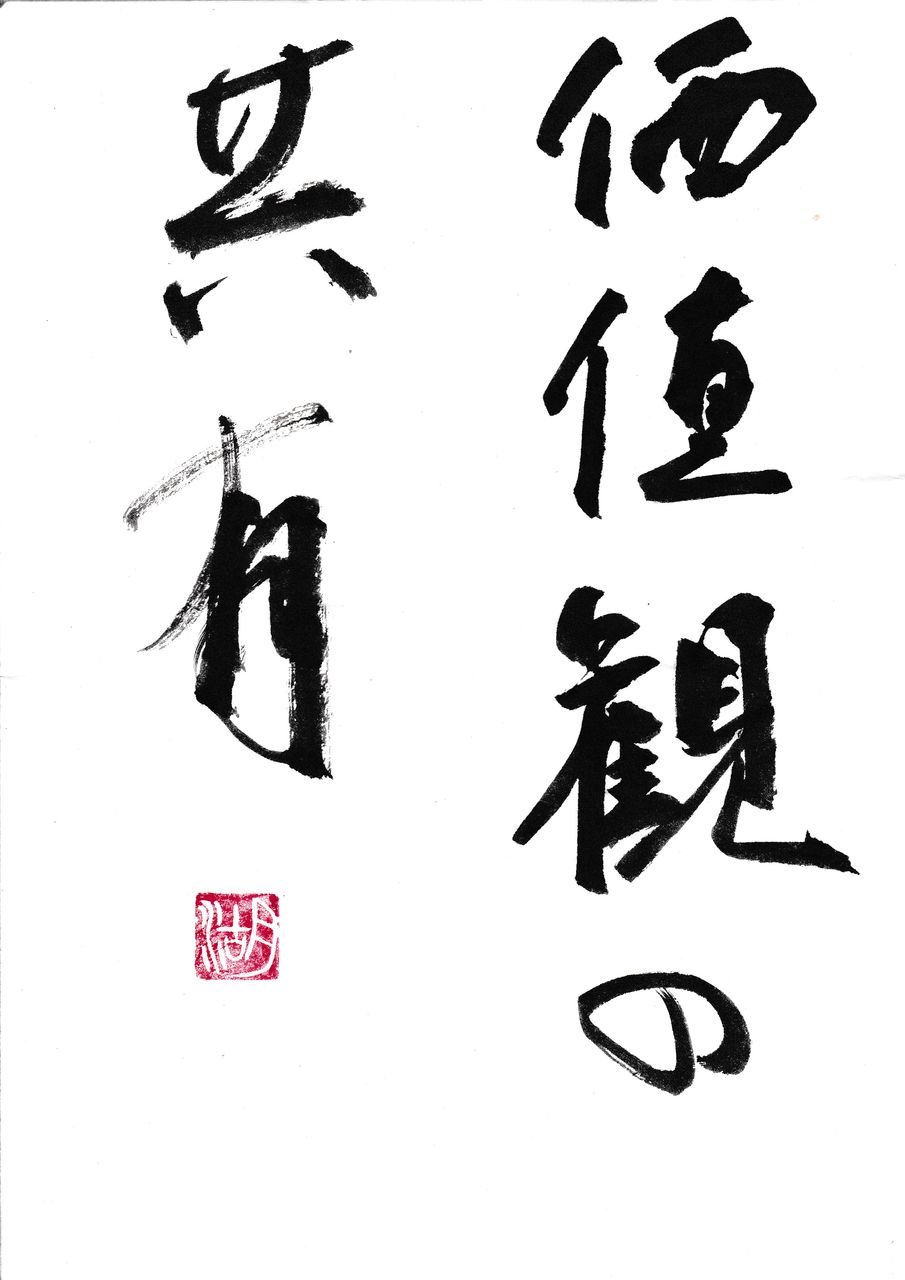 価値観の
共有
湖